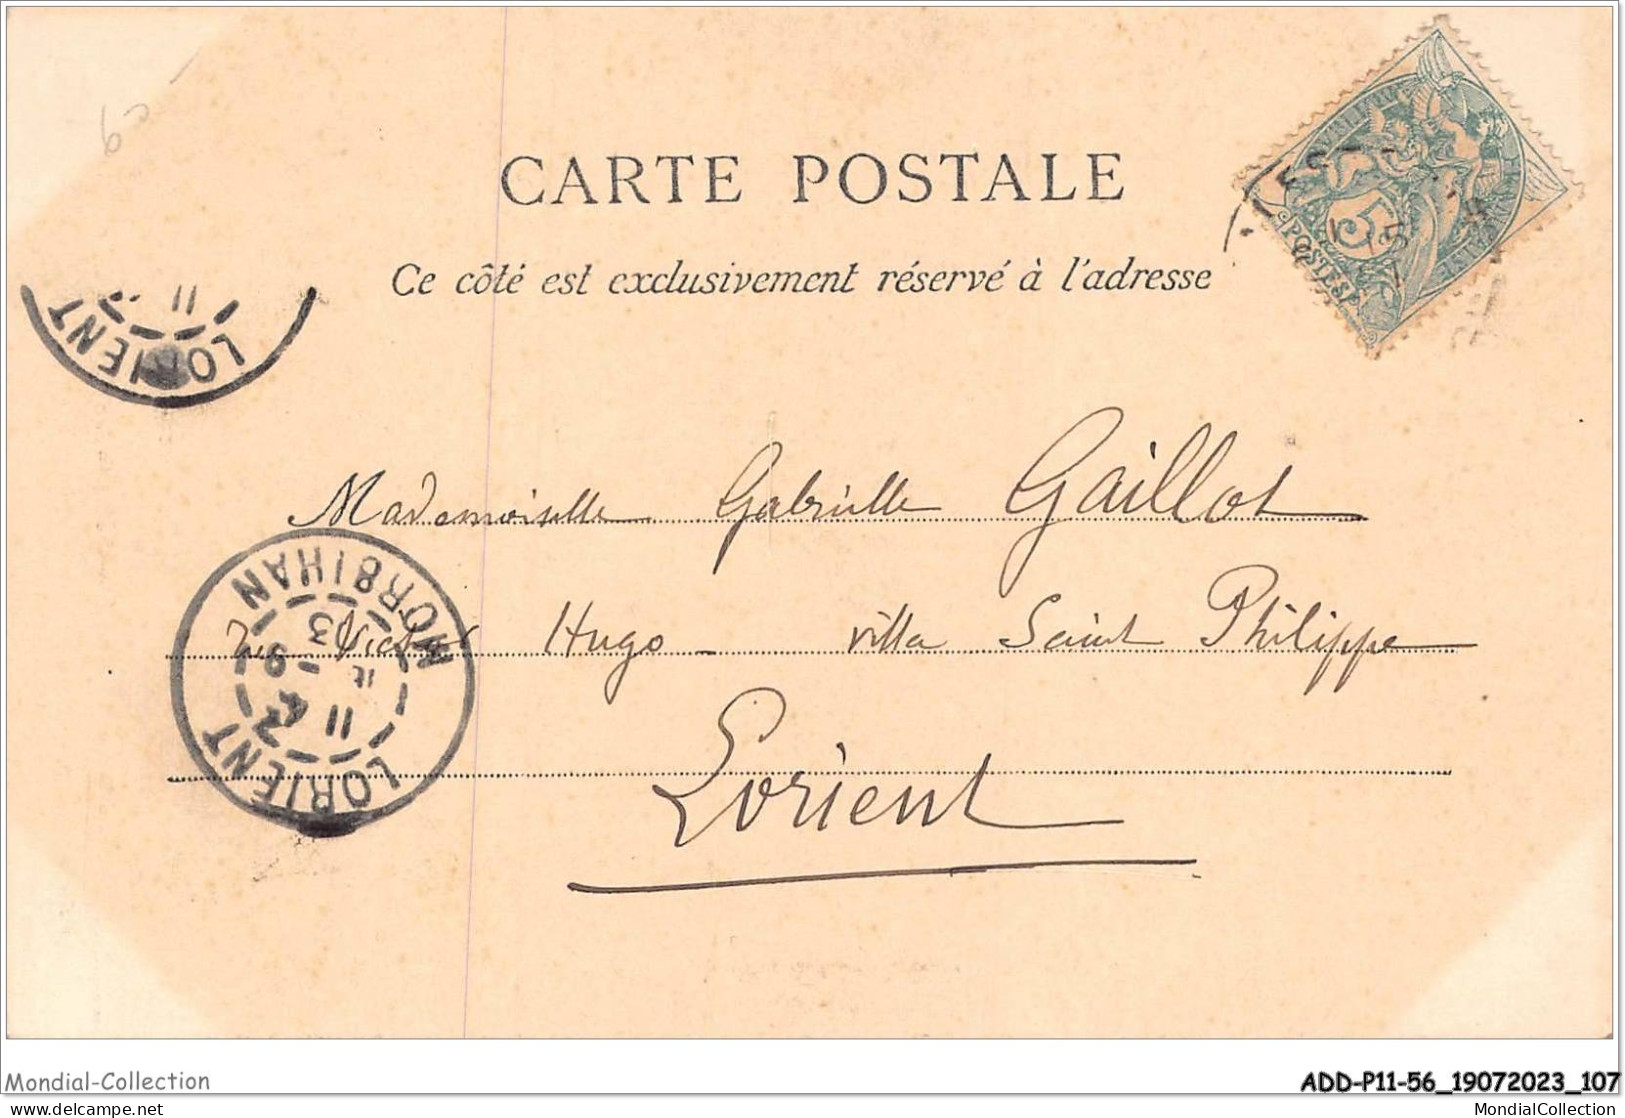 CARTE POSTALE
Ce côté est exclusivement réservé à l'adresse
5
POSTES
LORIENT
11
Mademoiselle Gabrielle Gaillot
rue Victor Hugo - villa Saint Philippe
Lorient
LORIENT
MORBIHAN
11
9
03
Mondial-Collection
ADD-P11-56_19072023_107
MondialCollection
MondialCollection